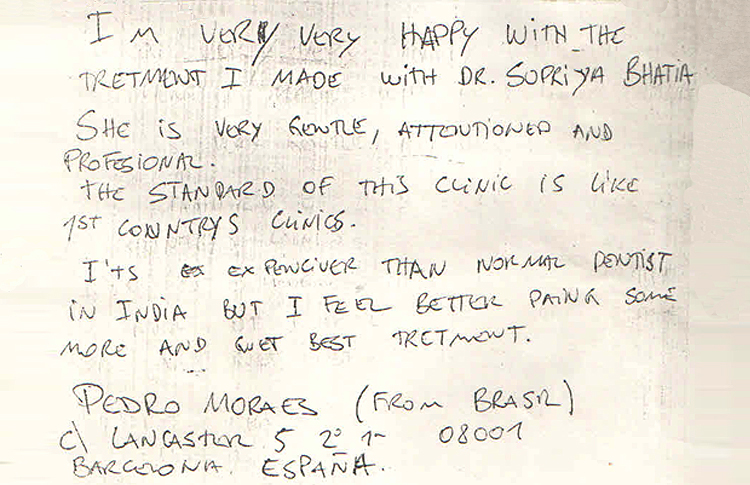 I M VERY VERY HAPPY WITH THE
TRETMONT I MADE WITH DR. SUPRIYA BHATIA
SHE IS VERY GENTLE, ATTOUTIONED AND
PROFESIONAL.
THE STANDARD OF THIS CLINIC IS LIKE
1ST COWNTRYS CLINICS.
I'TS EX EXPENCIVER THAN NORMAL DENTIST
IN INDIA BUT I FEEL BETTER PAING SOME
MORE AND GUET BEST TRETMONT.
PEDRO MORAES (FROM BRASIL)
C\ LANCASTER 5 2º 1ª 08001
BARCELONA. ESPAÑA.